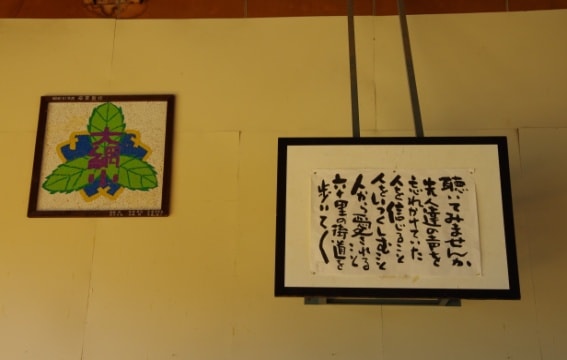 大網小
聴いてみませんか
先人達の声を
忘れかけていた
人を信じること
人をいつくしむこと
人から愛されること
六十里の街道を
歩いて